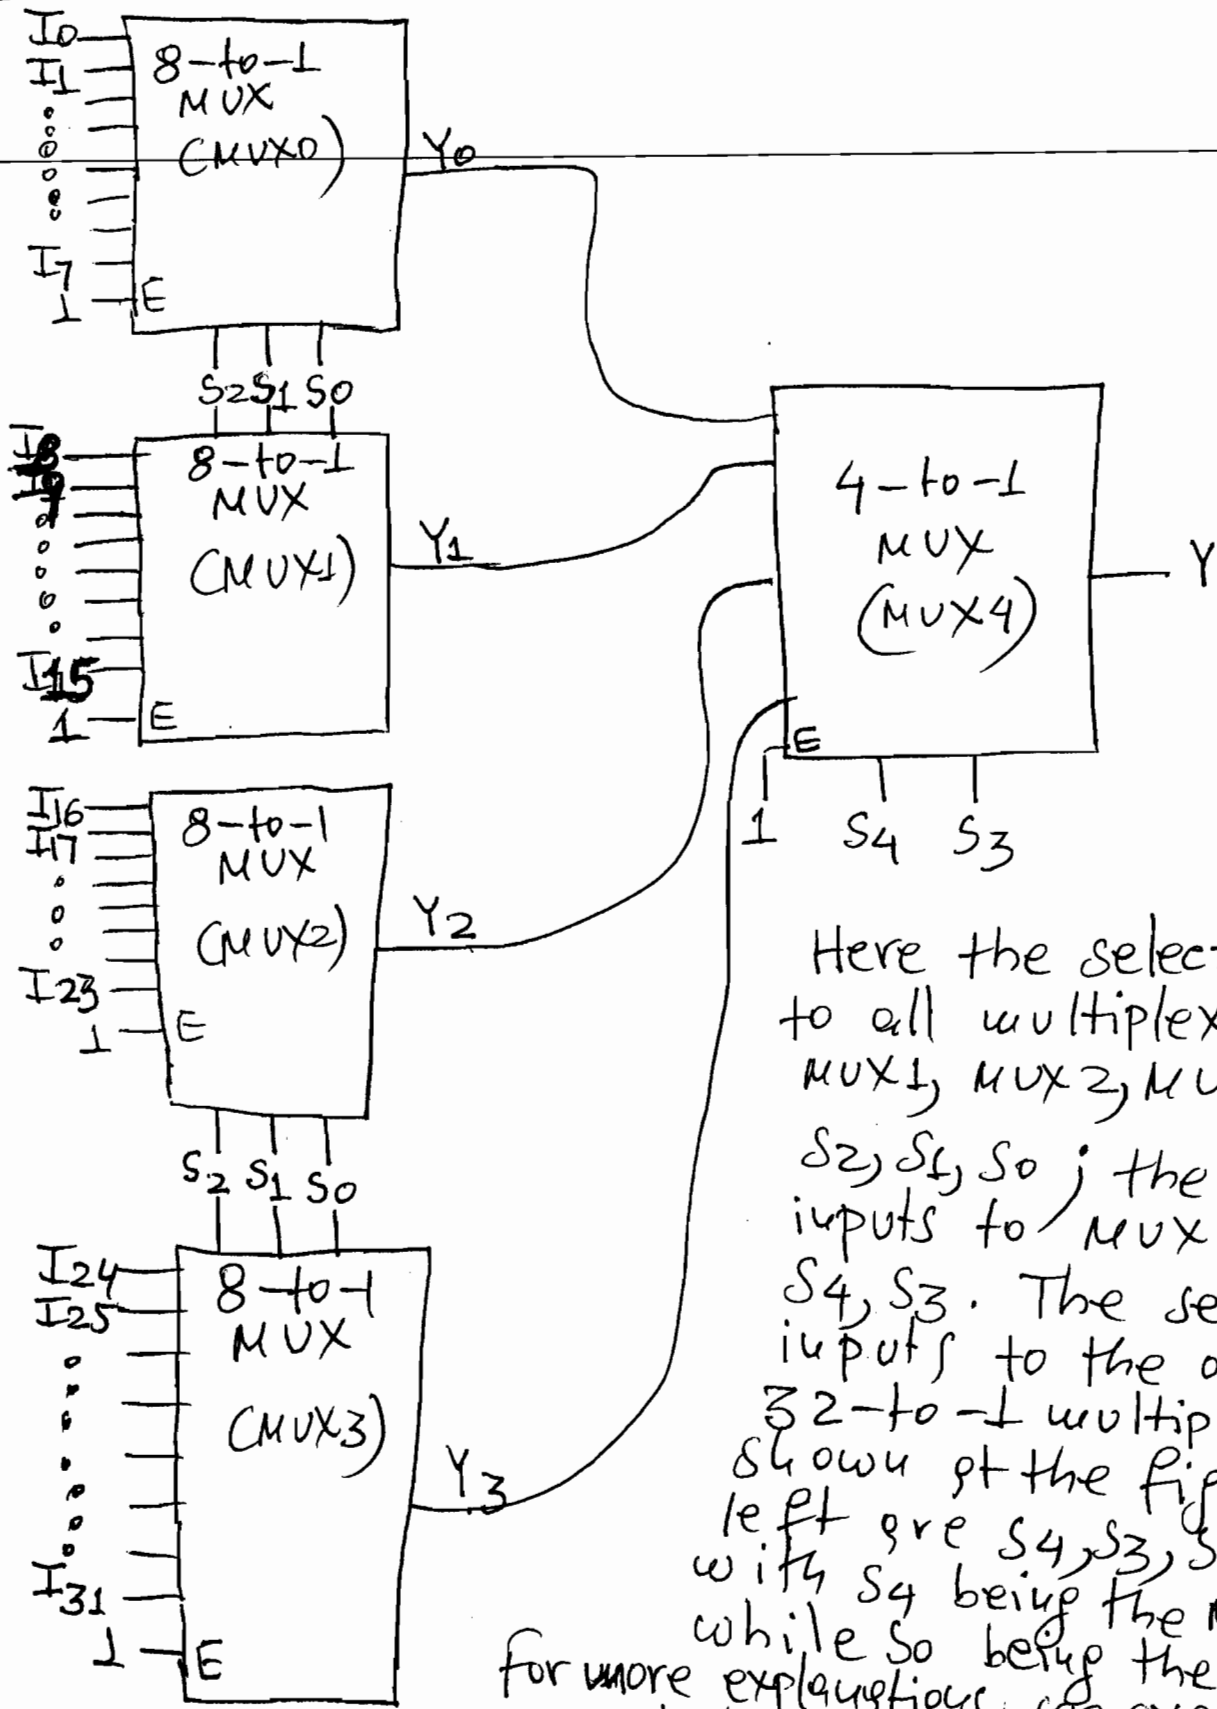 I0
I1
I7
1
8-to-1
MUX
(MUX0)
E
Y0
S2 S1 S0
I8
I9
I15
1
8-to-1
MUX
(MUX1)
E
Y1
I16
I17
I23
1
8-to-1
MUX
(MUX2)
E
Y2
S2 S1 S0
I24
I25
I31
1
8-to-1
MUX
(MUX3)
E
Y3
4-to-1
MUX
(MUX4)
E
Y
1 S4 S3
Here the selec
to all multiplex
MUX1, MUX2, MU
S2, S1, S0 ; the
inputs to MUX
S4, S3. The se
inputs to the
32-to-1 multip
shown at the fig
left are S4, S3, S
with S4 being the
while S0 being the
for more explanations